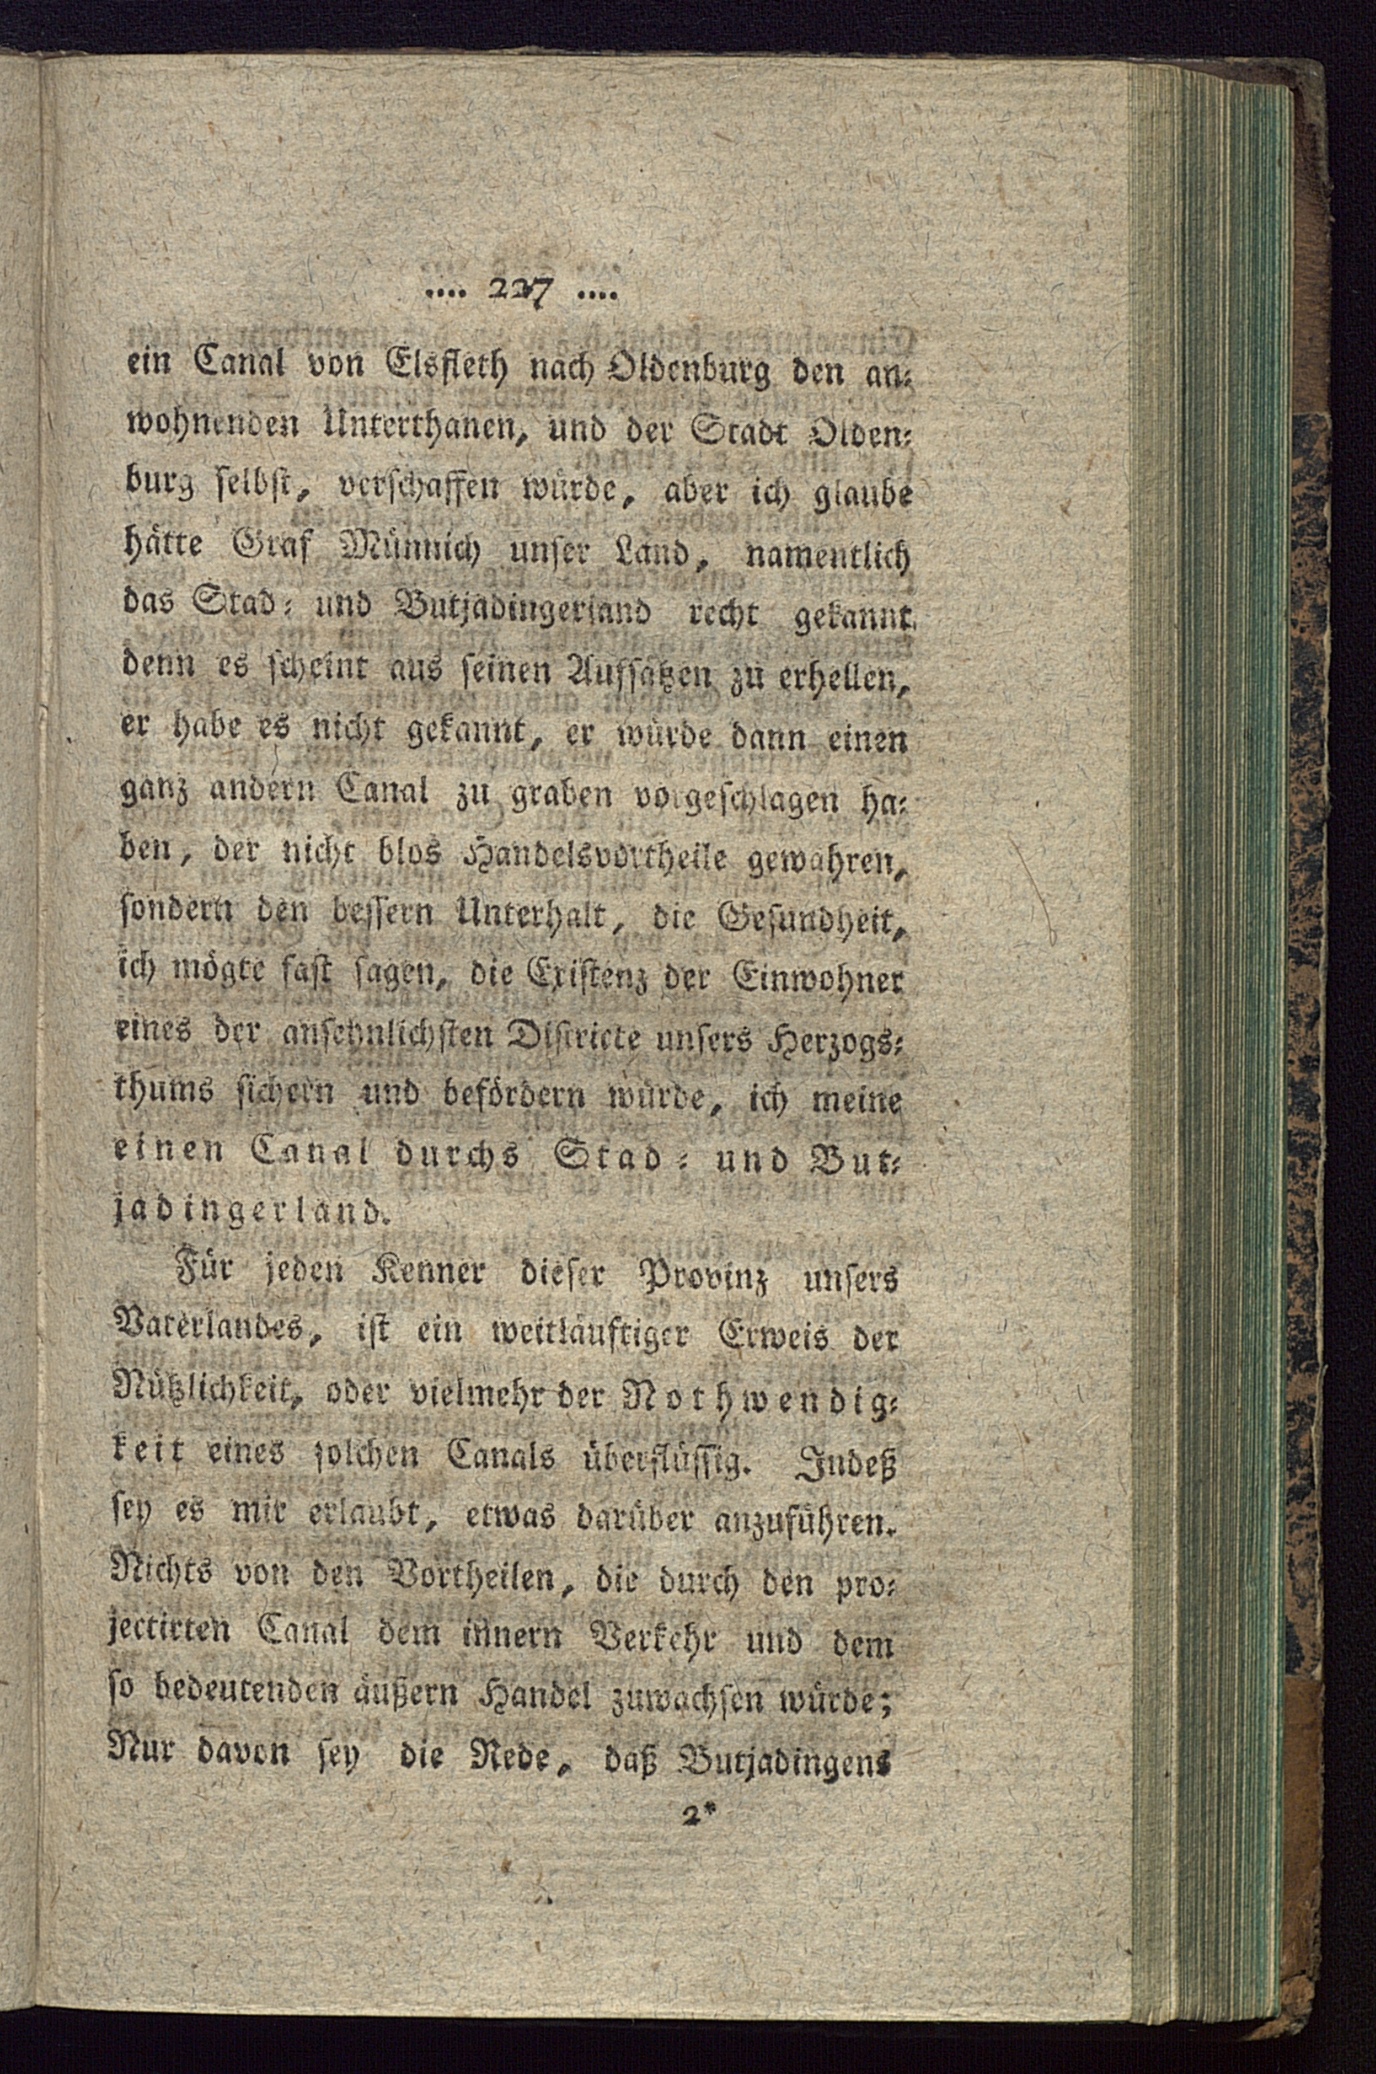 .... 227 ....
ein Canal von Elsfleth nach Oldenburg den an-
wohnenden Unterthanen, und der Stadt Olden-
burg selbst, verschaffen würde, aber ich glaube
hätte Graf Münnich unser Land, namentlich
das Stad- und Butjadingerland recht gekannt.
denn es scheint aus seinen Aufsätzen zu erhellen,
er habe es nicht gekannt, er würde dann einen
ganz andern Canal zu graben vorgeschlagen ha-
ben, der nicht blos Handelsvortheile gewähren,
sondern den bessern Unterhalt, die Gesundheit,
ich mögte fast sagen, die Existenz der Einwohner
eines der ansehnlichsten Districte unsers Herzogs-
thums sichern und befördern würde, ich meine
einen Canal durchs Stad- und But-
jadingerland.
Für jeden Kenner dieser Provinz unsers
Vaterlandes, ist ein weitläuftiger Erweis der
Nützlichkeit, oder vielmehr der Nothwendig-
keit eines solchen Canals überflüssig. Indeß
sey es mir erlaubt, etwas darüber anzuführen.
Nichts von den Vortheilen, die durch den pro-
jectirten Canal dem innern Verkehr und dem
so bedeutenden äußern Handel zuwachsen würde;
Nur davon sey die Rede, daß Butjadingens
2*